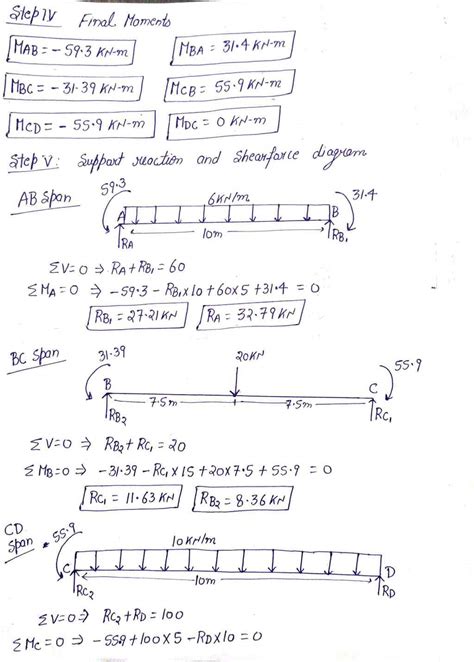 Step IV Final Moments
MAB = - 59.3 KN-m MBA = 31.4 KN-m
MBC = - 31.39 KN-m MCB = 55.9 KN-m
MCD = - 55.9 KN-m MDC = 0 KN-m
Step V: Support reaction and Shearforce diagram
AB Span
59.3 31.4
6KN/m
A B
10m
RA RB1
ΣV=0 ⇒ RA + RB1 = 60
ΣMA = 0 ⇒ -59.3 - RB1×10 + 60×5 + 31.4 = 0
RB1 = 27.21 KN RA = 32.79 KN
BC Span
31.39 20KN 55.9
B C
7.5m 7.5m
RB2 RC1
ΣV=0 ⇒ RB2 + RC1 = 20
ΣMB=0 ⇒ -31.39 - RC1×15 + 20×7.5 + 55.9 = 0
RC1 = 11.63 KN RB2 = 8.36 KN
CD Span
55.9
10KN/m
C D
10m
RC2 RD
ΣV=0 ⇒ RC2 + RD = 100
ΣMC = 0 ⇒ -55.9 + 100×5 - RD×10 = 0